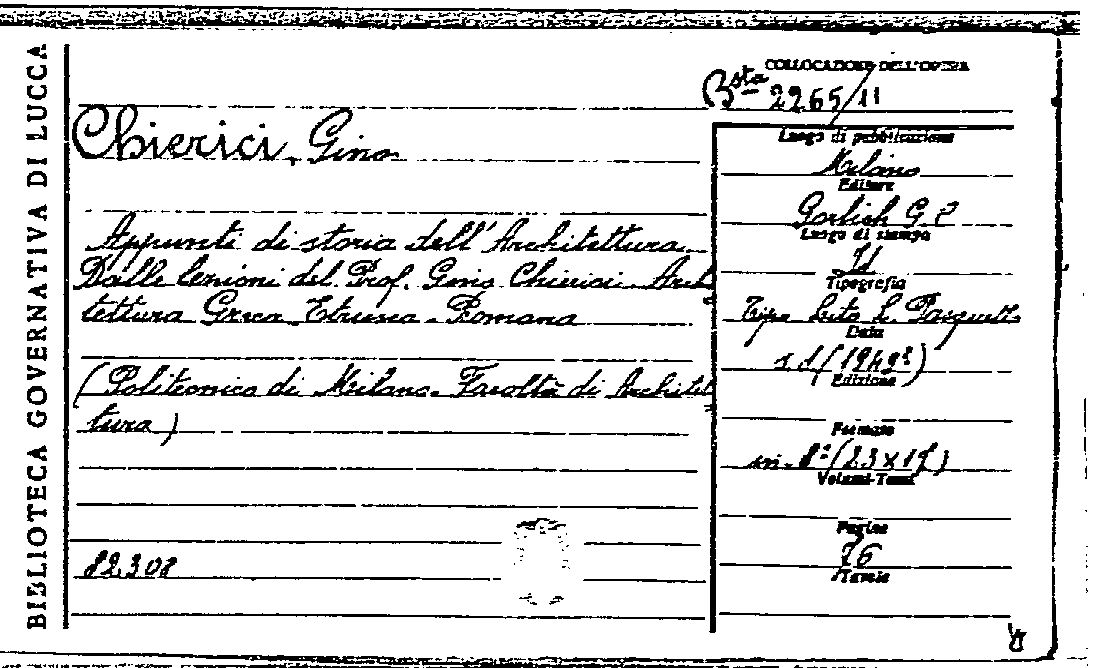 BIBLIOTECA GOVERNATIVA DI LUCCA
COLLOCAZIONE DELL'OPERA
Bsta 2265/11
Chierici, Gino
Appunti di storia dell'Architettura.
Dalle lezioni del Prof. Gino Chierici. Archi
tettura Greca-Etrusca-Romana
(Politecnico di Milano-Facoltà di Architet
tura)
82.308
Luogo di pubblicazione
Milano
Editore
Gorlich G.
Luogo di stampa
Id
Tipografia
Tipo Lito L.
Data
s.d(1949?)
Edizione
Formato
in-8°(23x17)
Volumi-Tomi
Pagine
76
Tavole